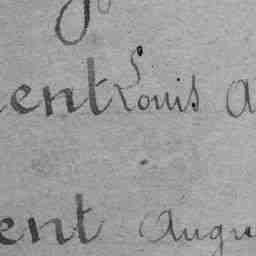 ent Louis A
ent Augu